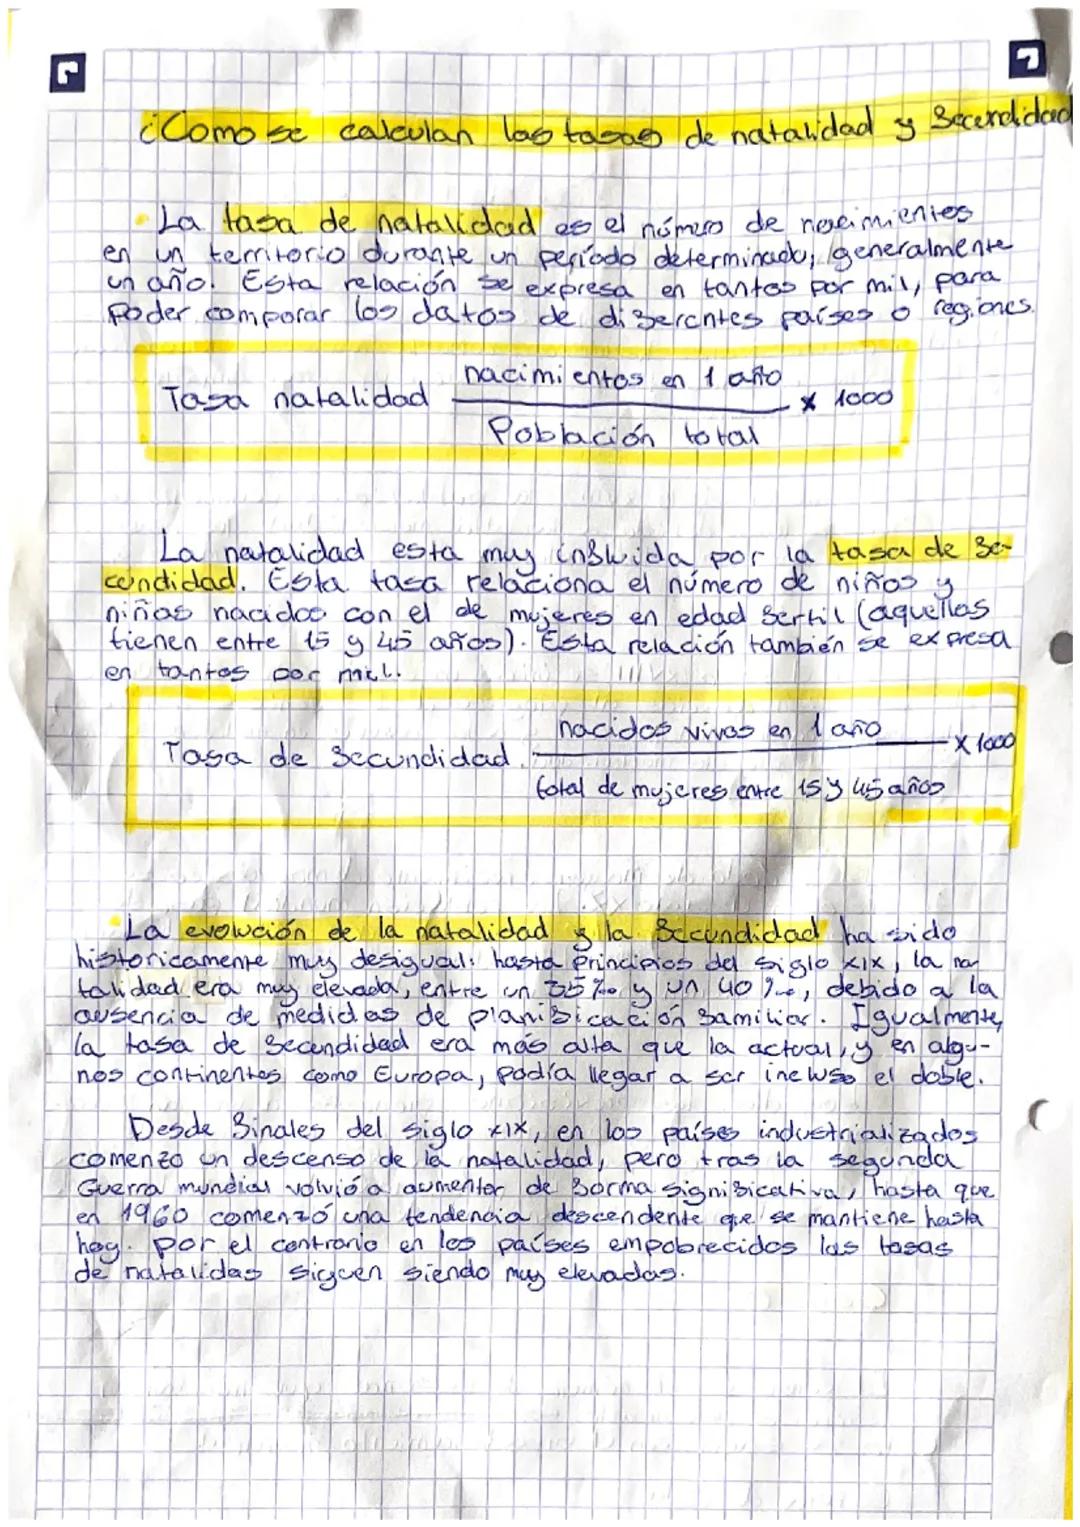 ¿Como se calculan las tasas de natalidad y fecundidad
La tasa de natalidad es el número de nacimientos
en un territorio durante un período determinado, generalmente
un año. Esta relación se expresa en tantos por mil, para
poder comparar los datos de diferentes países o regiones.
nacimientos en 1 año
Tasa natalidad x 1000
Población total
La natalidad esta muy influida por la tasa de fe-
cundidad. Esta tasa relaciona el número de niños y
niñas nacidos con el de mujeres en edad fertil (aquellas
tienen entre 15 y 45 años). Esta relación también se expresa
en tantos por mil.
nacidos vivos en 1 año
Tasa de fecundidad x 1000
total de mujeres entre 15 y 45 años
La evolución de la natalidad y la fecundidad ha sido
historicamente muy desigual: hasta principios del siglo XIX, la na
talidad era muy elevada, entre un 35‰ y un 40‰, debido a la
ausencia de medidas de planificación familiar. Igualmente,
la tasa de fecundidad era más alta que la actual, y en algu-
nos continentes como Europa, podía llegar a ser incluso el doble.
Desde finales del siglo XIX, en los países industrializados
comenzo un descenso de la natalidad, pero tras la segunda
Guerra mundial volvió a aumentar de forma significativa, hasta que
en 1960 comenzó una tendencia descendente que se mantiene hasta
hoy. por el contrario en los países empobrecidos las tasas
de natalidas siguen siendo muy elevadas.